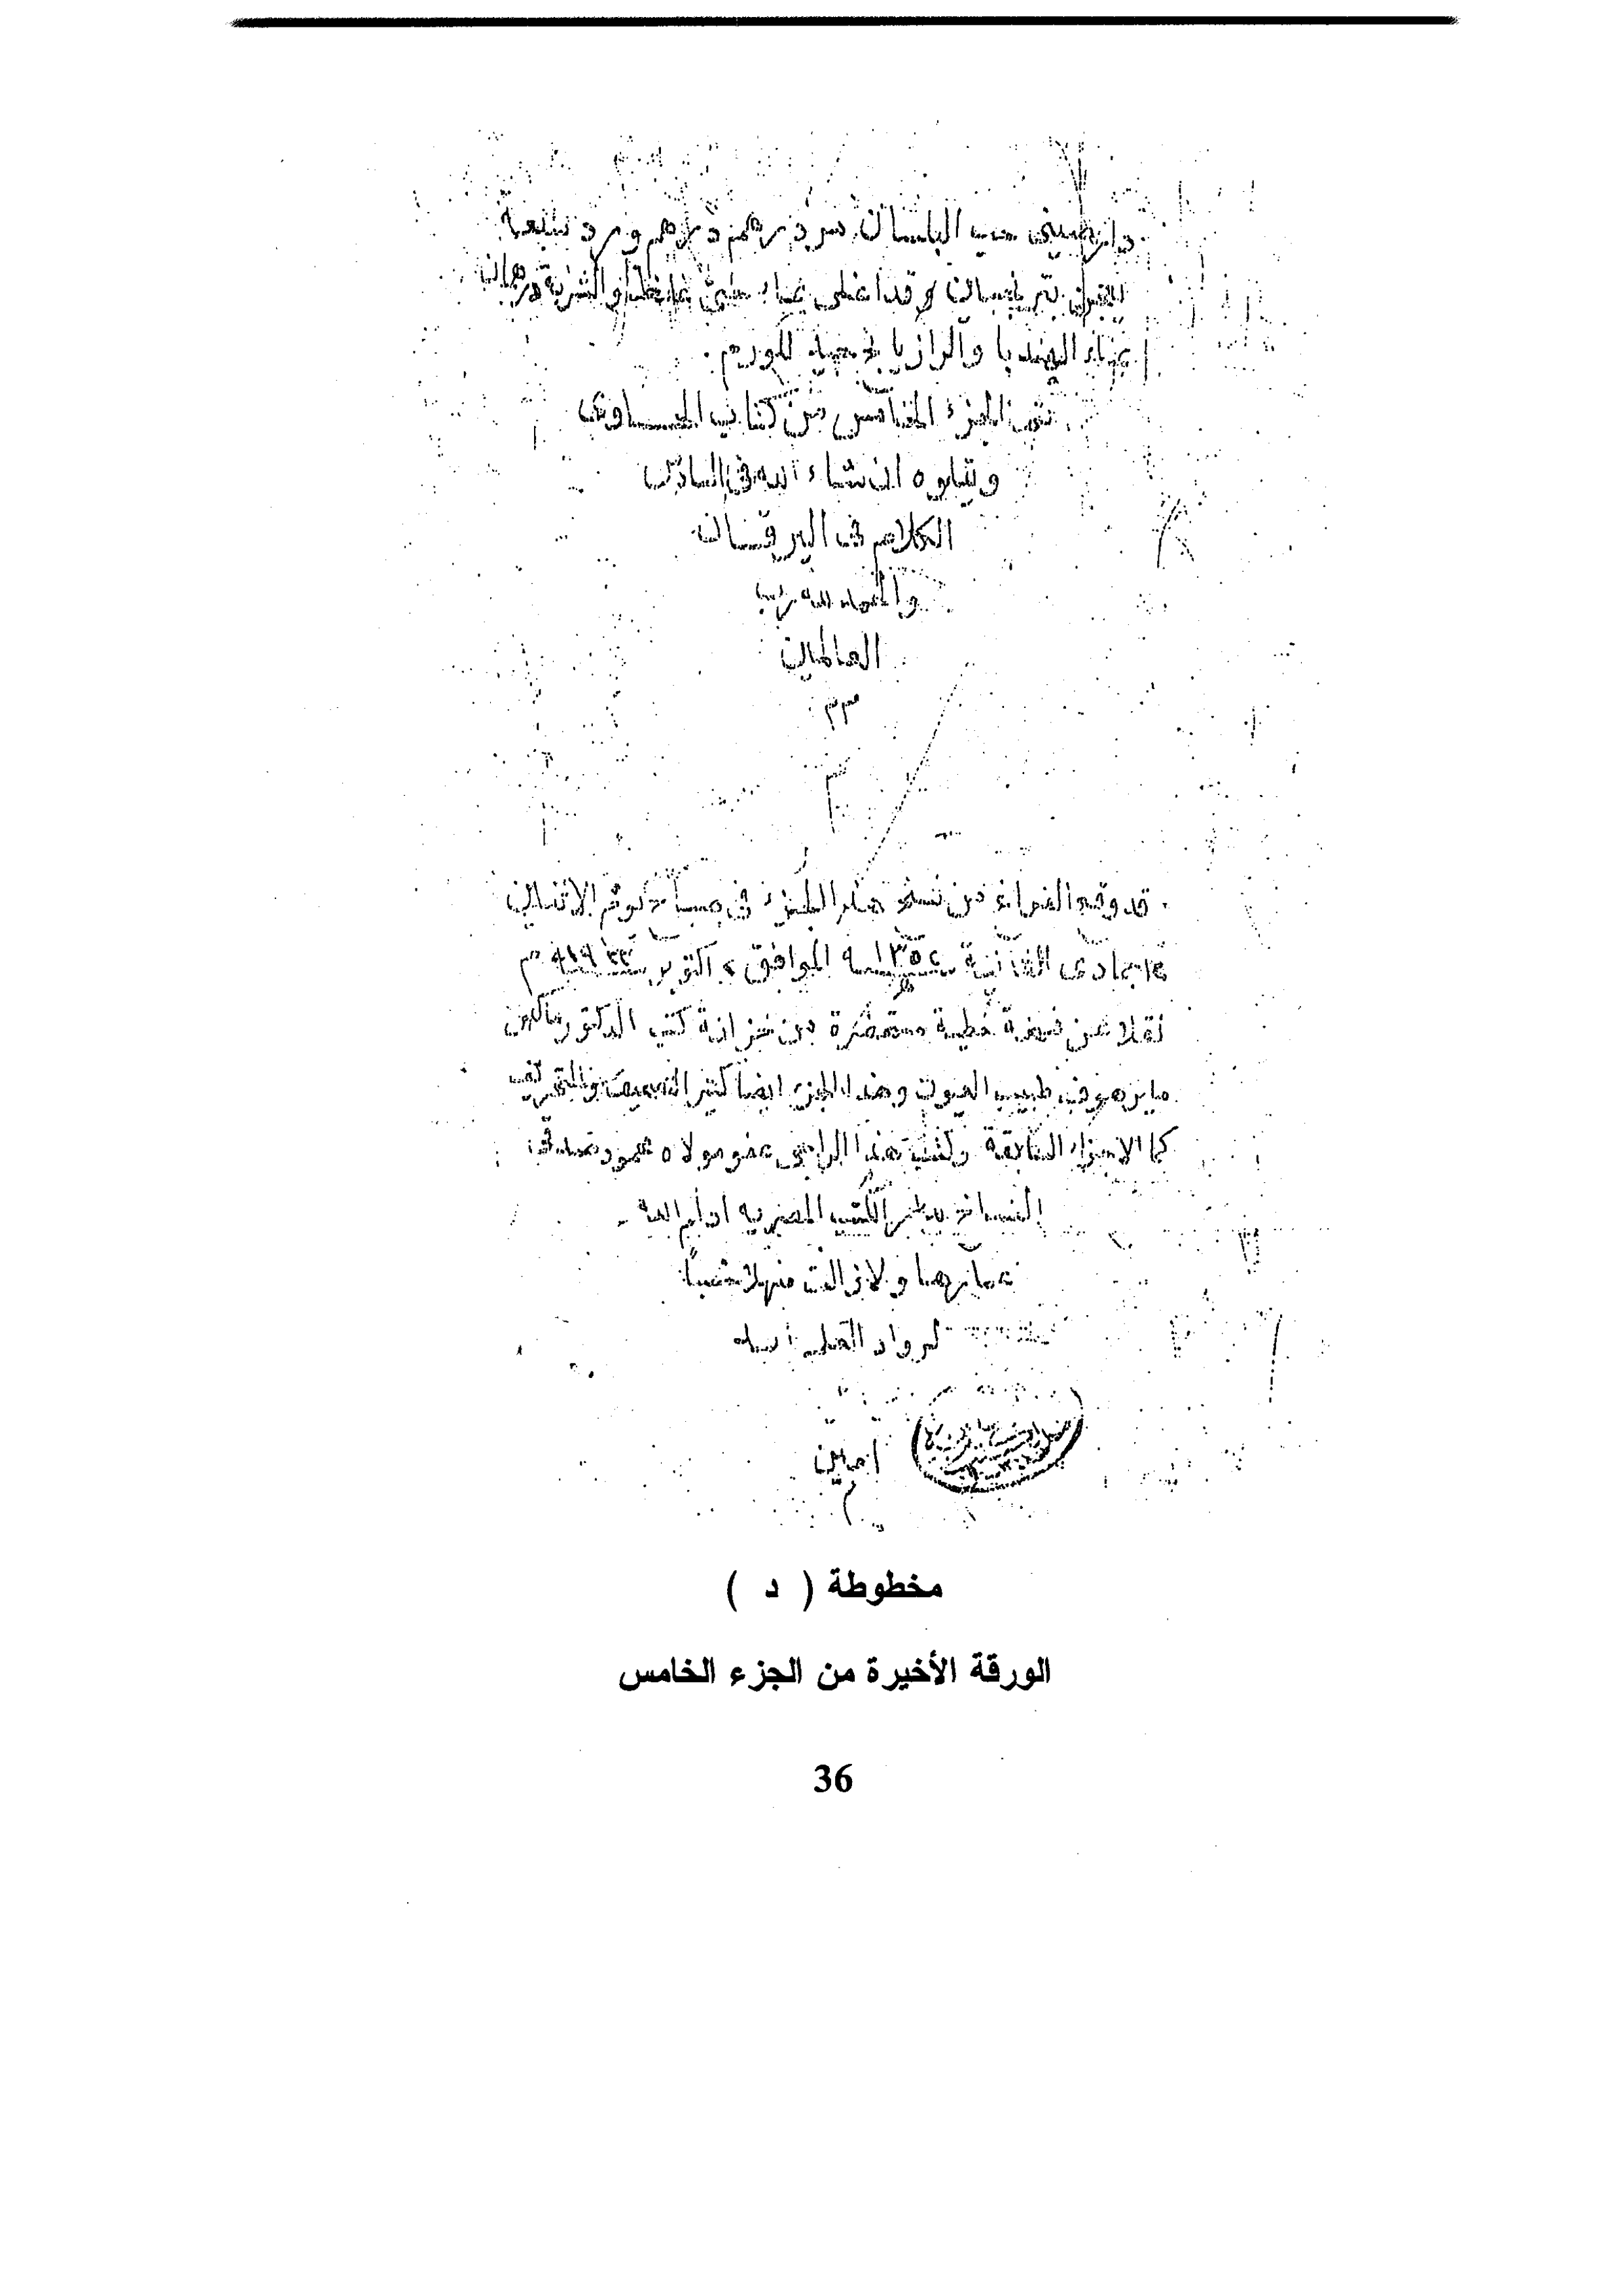 دارصينى حب البلسان درهم درهم ورد سبعة
يعجن
بماء الهندبا والرازيانج للورم
تم الجزء الخامس من كتاب الحاوى
ويتلوه ان شاء الله فى السادس
الكلام فى اليرقان
والحمد لله رب
العالمين
قد وقع الفراغ من نسخ هذا الجزء فى صباح يوم الاثنين
جمادى الثانية سنة ١٣٥٢ الموافق اكتوبر سنة ١٩٣٣ م
نقلا عن نسخة خطية من خزانة كتب الدكتور ماكس
مايرهوف طبيب العيون وهذا الجزء ايضا كثير التصحيف والتحريف
كما الاجزاء السابقة وكتب هذا الراجى عفو مولاه محمود صدقى
النساخ بدار الكتب المصرية ادام الله
عمارها ولا زالت منهلا عذبا
لرواد
امين
مخطوطة ( د )
الورقة الأخيرة من الجزء الخامس
36